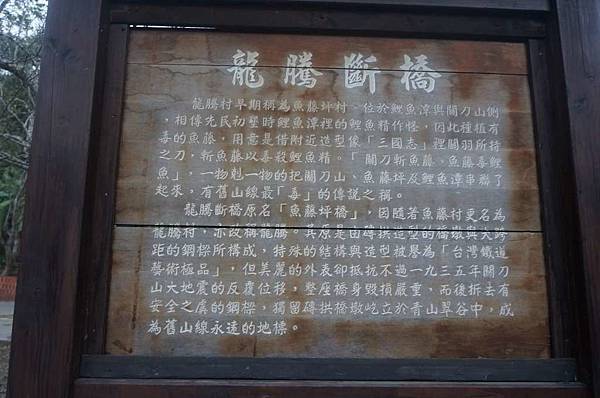 龍騰斷橋
龍騰村早期稱為魚藤坪村，位於鯉魚潭與關刀山側
，相傳先民初墾時鯉魚潭裡的鯉魚精作怪，因此種植有
毒的魚藤，用意是借附近造型像「三國志」裡關羽所持
之刀，斬魚藤以毒殺鯉魚精。「關刀斬魚藤、魚藤毒鯉
魚」，一物剋一物的把關刀山、魚藤坪及鯉魚潭串聯了
起來，有舊山線最「毒」的傳說之稱。
龍騰斷橋原名「魚藤坪橋」，因隨著魚藤村更名為
龍騰村，亦改稱龍騰。其原是由磚拱造型的橋墩與大跨
距的鋼樑所構成，特殊的結構與造型被譽為「台灣鐵道
藝術極品」，但美麗的外表卻抵抗不過一九三五年關刀
山大地震的反覆位移，整座橋身毀損嚴重，而後拆去有
安全之虞的鋼樑，獨留磚拱橋墩屹立於青山翠谷中，成
為舊山線永遠的地標。